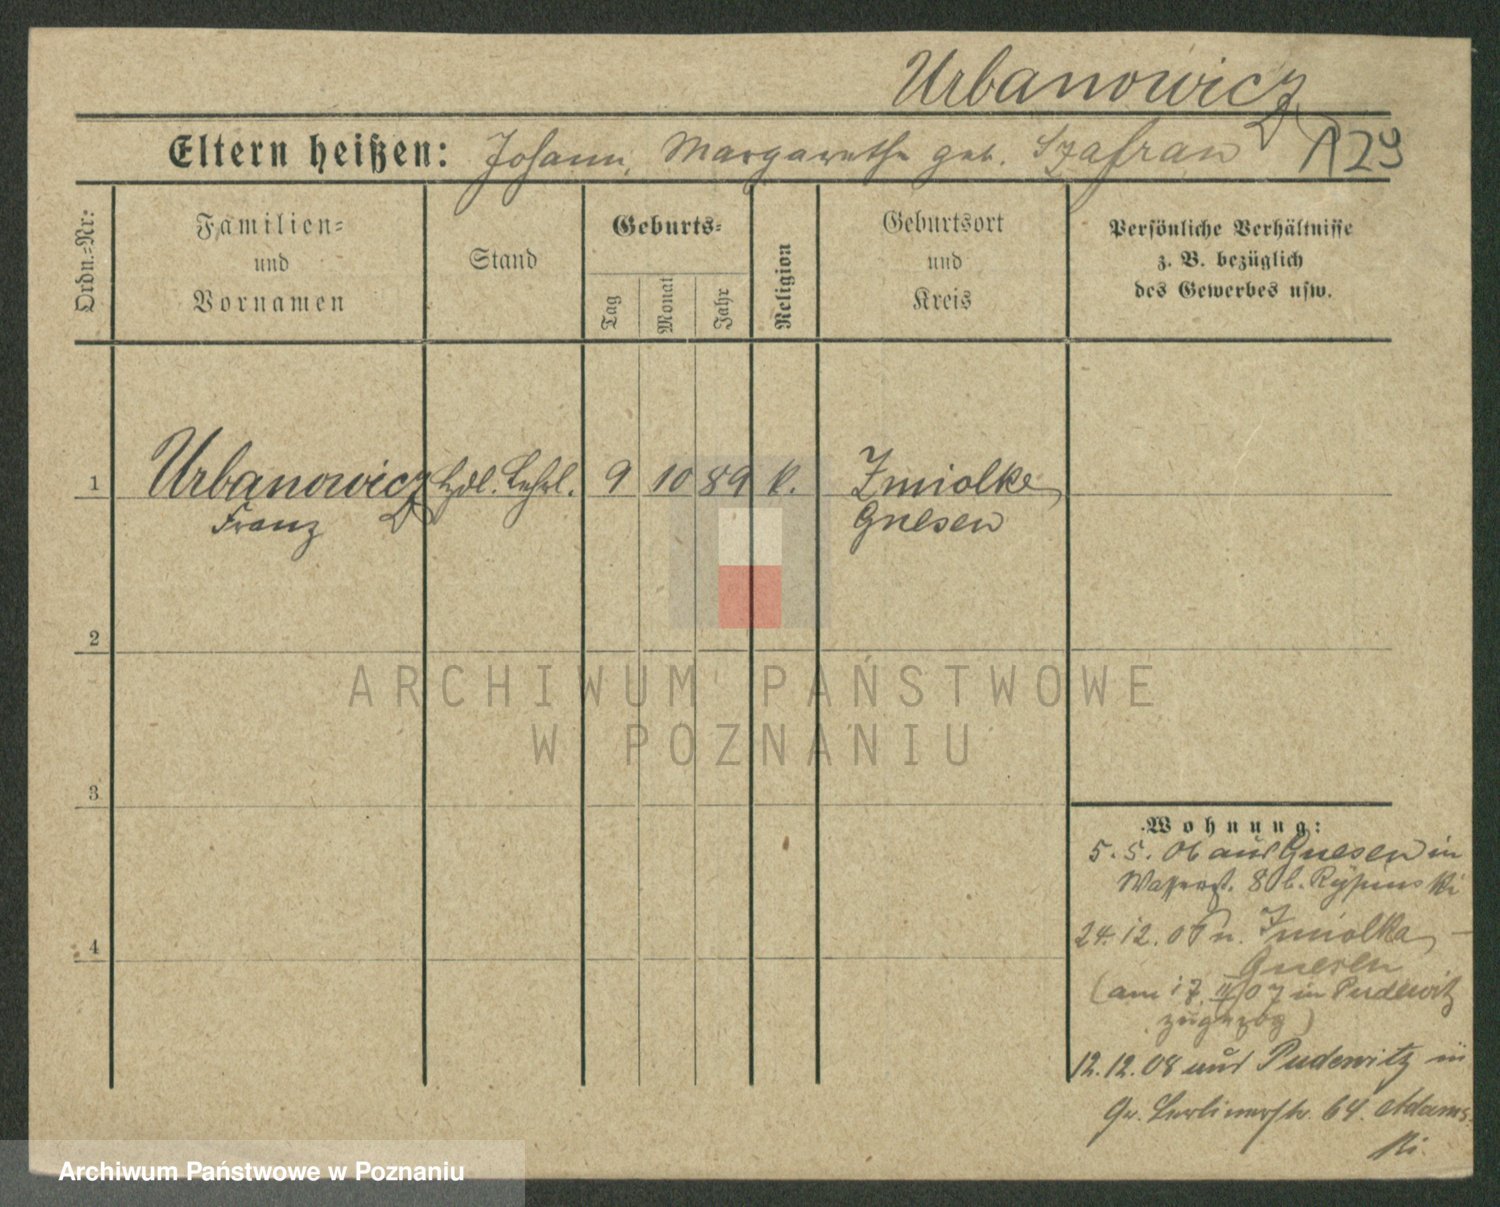 Urbanowicz
Eltern heißen: Johann, Margarethe geb. Szafran
A29
Ordn.-Nr:
Familien-
und
Vornamen
Stand
Geburts-
Tag
Monat
Jahr
Religion
Geburtsort
und
Kreis
Persönliche Verhältnisse
z. B. bezüglich
des Gewerbes usw.
1 Urbanowicz Hdl. Lehrl. 9 10 89 k. Zmiolke
Franz Gnesen
2
ARCHIWUM PAŃSTWOWE
W POZNANIU
3
Wohnung:
5. 5. 06 aus Gnesen in
Wasserst. 8 b. Rÿsinski
4
24. 12. 06 n. Zmiolka
Gnesen
(am 17. II 07 in Pudewitz
zugezog)
12. 12. 08 aus Pudewitz in
Gr. Berlinerstr. 64. Adams
ki.
Archiwum Państwowe w Poznaniu